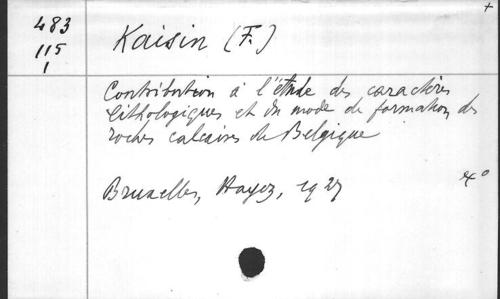 +
483
115
1
Kaisin (F.)
Contribution à l'étude des caractères
lithologiques et du mode de formation des
roches calcaires de Belgique
Bruxelles, Hayez, 1927
4°